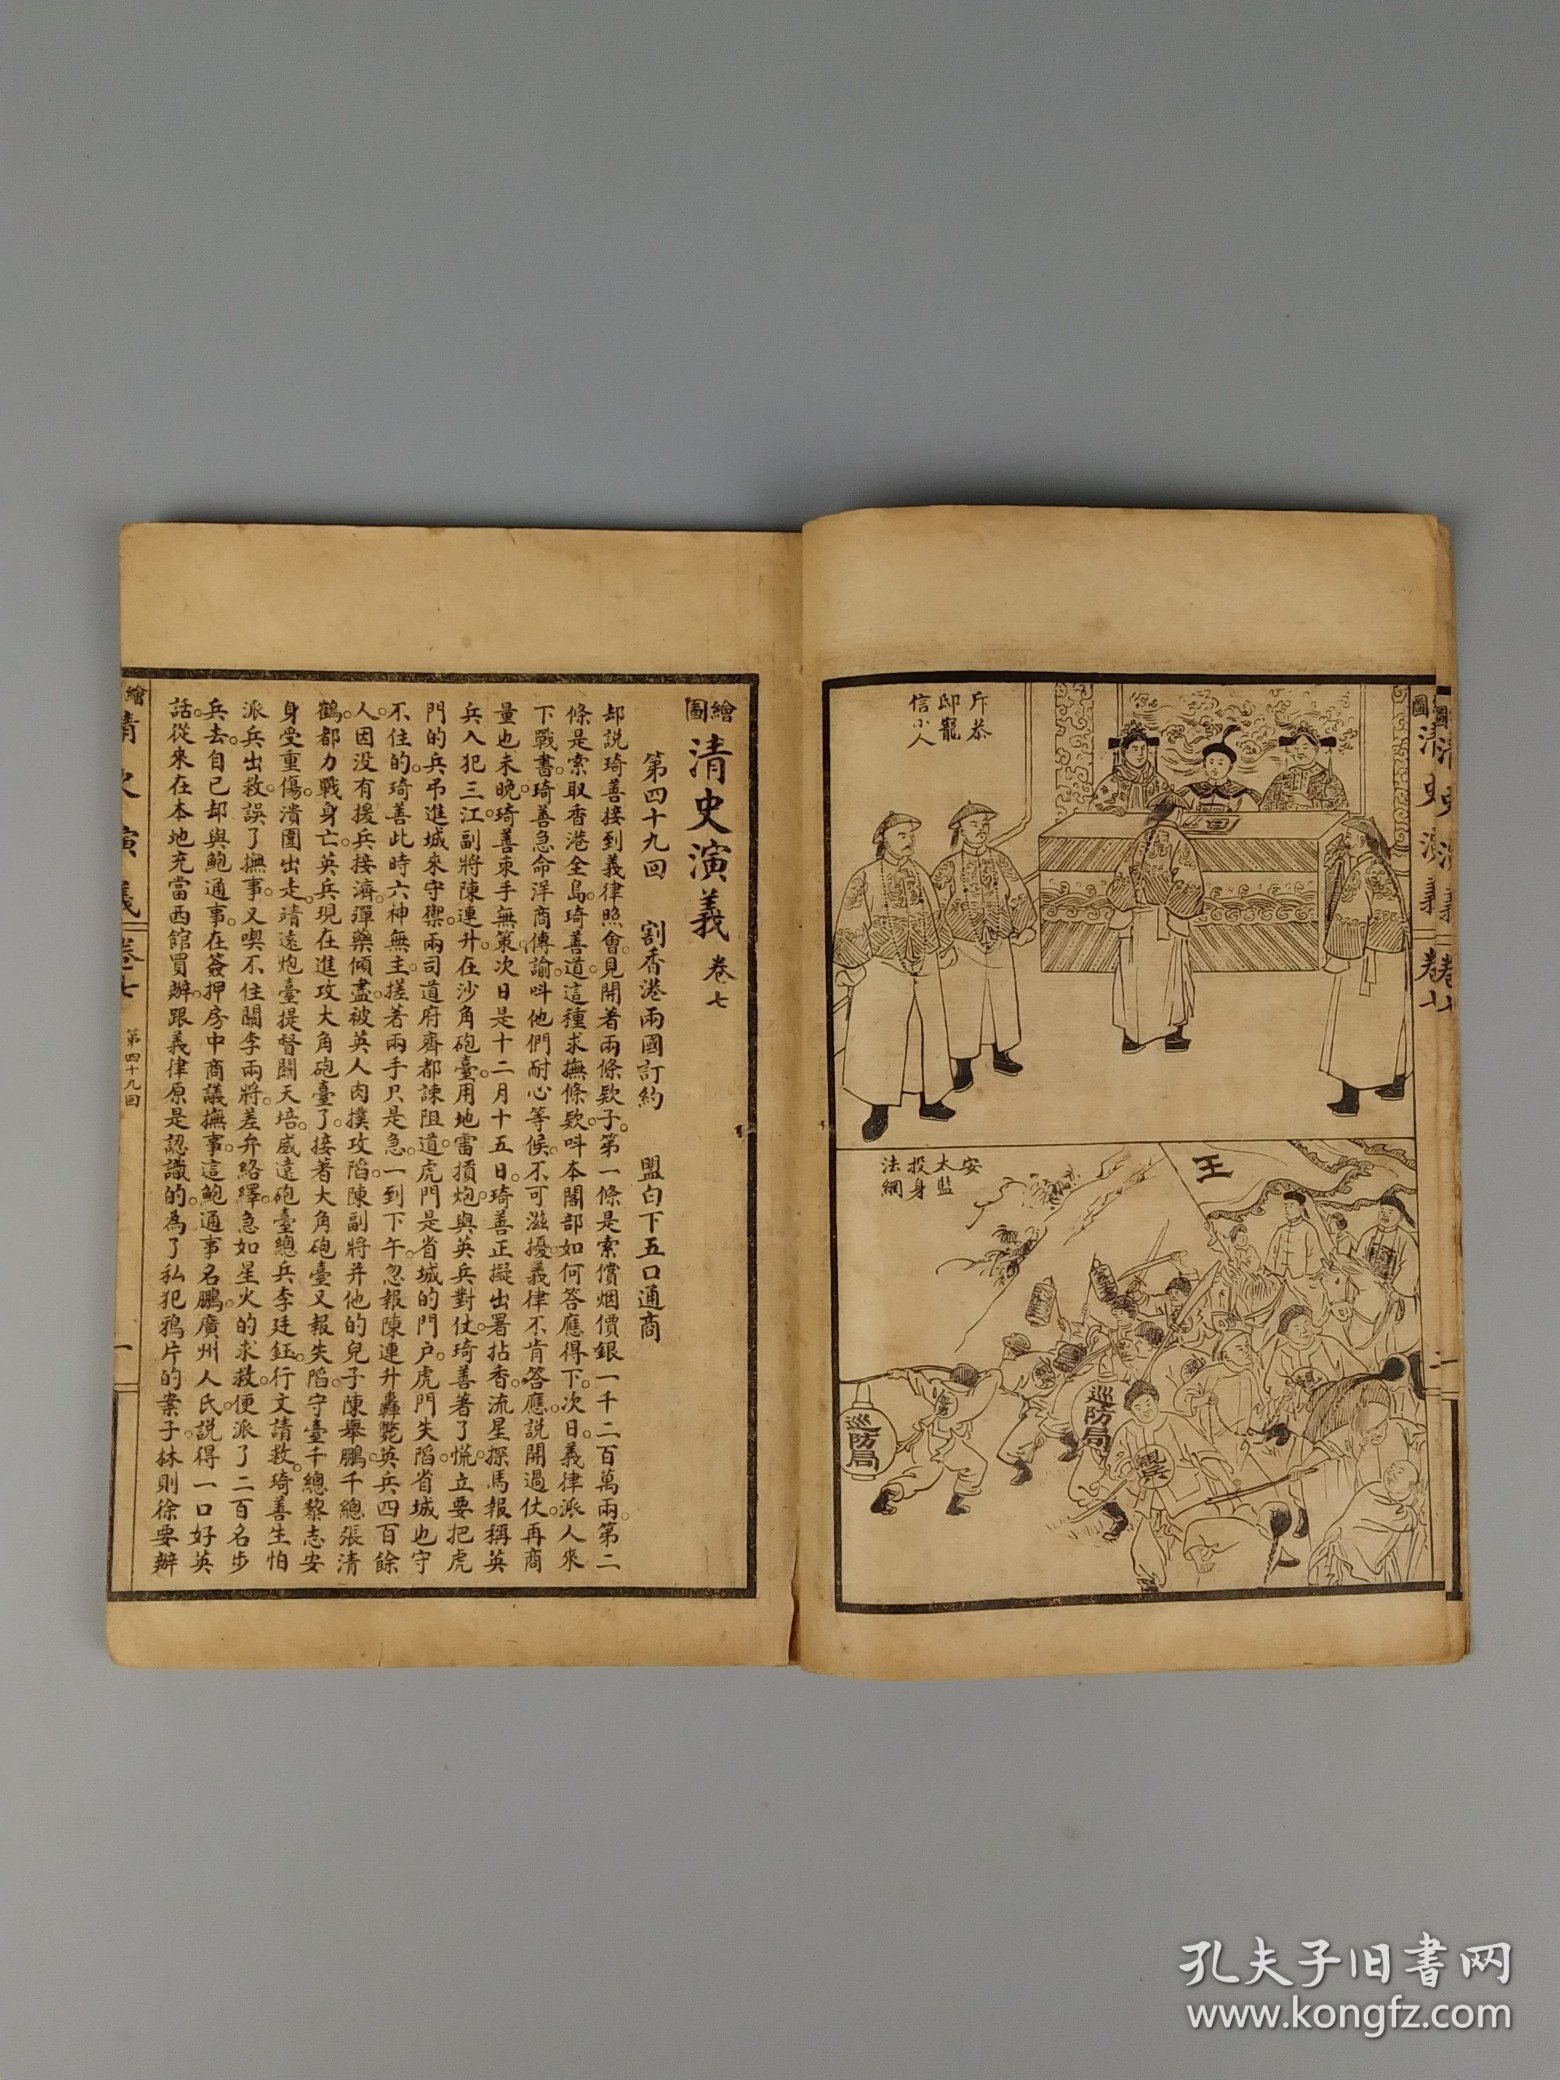 斥恭
邸寵
信小人
安
太監
投身
法網
王
巡防局
巡防局
繪圖清史演義 卷七
第四十九回 割香港兩國訂約 盟白下五口通商
却説琦善接到義律照會。見開著兩條欵子。第一條是索償烟價銀一千二百萬兩。第二
條是索取香港全島。琦善道這種求撫條欵。呌本閣部如何答應得下。次日。義律派人來
下戰書。琦善急命洋商傳諭。呌他們耐心等候。不可滋擾。義律不肯答應。説開過仗。再商
量也未晚。琦善束手無策。次日是十二月十五日。琦善正擬出署拈香。流星探馬報稱英
兵入犯三江副將陳連升。在沙角砲臺。用地雷擯炮。與英兵對仗。琦善著了慌。立要把虎
門的兵弔進城來守禦。兩司道府齊都諫阻。道虎門是省城的門户。虎門失陷。省城也守
不住的。琦善此時六神無主。搓著兩手只是急。一到下午。忽報陳連升轟斃英兵四百餘
人。因没有援兵接濟。彈藥傾盡。被英人肉撲攻陷。陳副將并他的兒子陳舉鵬。千總張清
鶴。都力戰身亡。英兵現在進攻大角砲臺了。接著大角砲臺又報失陷。守臺千總黎志安
身受重傷。潰圍出走。靖遠炮臺提督關天培。威遠砲臺總兵李廷鈺。行文請救。琦善生怕
派兵出救。誤了撫事。又喫不住關李兩將。差弁絡繹。急如星火的求救。便派了二百名步
兵去。自已却與鮑通事。在簽押房中商議撫事。這鮑通事名鵬。廣州人氏。説得一口好英
話。從來在本地充當西館買辦。跟義律原是認識的。為了私犯鴉片的案子。林則徐要辦
第四十九回
孔夫子旧书网
www.kongfz.com